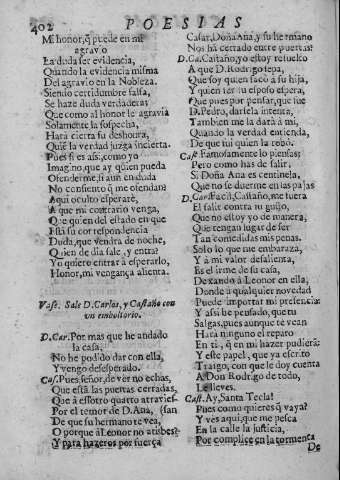 402 POESIAS
Mi honor, q̃ puede en mi
agravio
La duda ser evidencia,
Quando la evidencia misma
Del agravio en la Nobleza.
Siendo certidumbre falsa,
Se haze duda verdadera;
Que como al honor le agravia
Solamente la sospecha,
Hará cierta su deshonra,
Quiẽ la verdad juzga incierta.
Pues si es assi, como yo
Imagino, que ay quien pueda
Ofenderme, si aun en duda
No consiento q̃ me ofendan;
Aqui oculto esperarè,
A que mi contrario venga,
Que quien del estado en que
Està su correspondencia
Duda, que vendra de noche,
Quien de dia sale, y entra?
Yo quiero entrar à esperarlo,
Honor, mi vengança alienta.
Vase. Sale D. Carlos, y Castaño con
un embultorio.
D. Car. Por mas que he andado
la casa,
No he podido dar con ella,
Y vengo desesperado.
Cas. Pues señor, de ver no echas,
Que està las puertas cerradas,
Que à essotro quarto atravies-
Por el temor de D. Ana, (san
De que su hermano te vea,
O porque à Leonor no atisbes?
Y para hazeros por fuerça
Casar, Doña Ana, y su hermano
Nos hà cerrado entre puertas?
D. Ca. Castaño, yo estoy resuelto
A que D. Rodrigo sepa,
Que soy quien sacò à su hija,
Y quien ser su esposo espera,
Que pues por pensar, que fue
D. Pedro, darsela intenta,
Tambien me la darà à mi,
Quando la verdad entienda,
De que fui quien la robò.
Cast. Famosamente lo piensas;
Pero como has de salir,
Si Doña Ana es centinela,
Que no se duerme en las pajas
D. Car. Facil, Castaño, me fuera
El salir contra su gusto,
Que no estoy yo de manera,
Que tengan lugar de ser
Tan comedidas mis penas.
Solo lo que me embaraza,
Y à mi valor desalienta,
Es el irme de su casa,
Dexando à Leonor en ella,
Donde à qualquier novedad
Puede importar mi presencia:
Y assi he pensado, que tu
Salgas, pues aunque te vean
Harà ninguno el reparo
En ti, q̃ en mi hazer pudierà:
Y este papel, que ya escrito
Traigo, con que le doy cuenta
A Don Rodrigo de todo,
Le lleves.
Cast. Ay, Santa Tecla!
Pues como quieres q̃ vaya?
Y ves aqui, que me pesca
En la calle la justicia,
Por complice en la tormenta
De